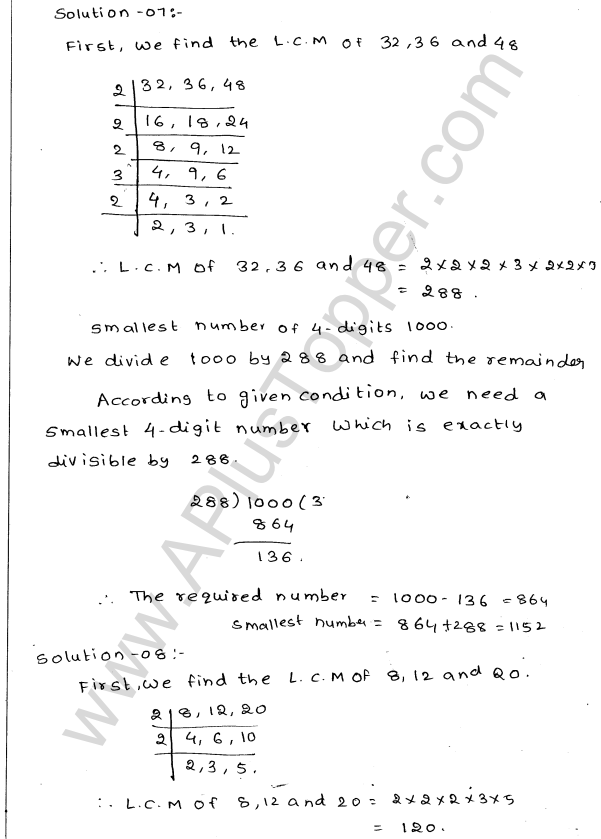 Solution -07:-
First, we find the L.C.M of 32,36 and 48
2 | 32, 36, 48
2 | 16, 18, 24
2 | 8, 9, 12
3 | 4, 9, 6
2 | 4, 3, 2
2, 3, 1.
∴ L.C.M of 32,36 and 48 = 2×2×2×3×2×2×3
= 288.
Smallest number of 4-digits 1000.
We divide 1000 by 288 and find the remainder
According to given condition, we need a
smallest 4-digit number which is exactly
divisible by 288.
288) 1000 (3
864
136.
∴ The required number = 1000 - 136 = 864
Smallest number = 864+288 = 1152
Solution -08:-
First, we find the L.C.M of 8, 12 and 20.
2 | 8, 12, 20
2 | 4, 6, 10
2, 3, 5.
∴ L.C.M of 8,12 and 20 = 2×2×2×3×5
= 120.
www.APlusTopper.com